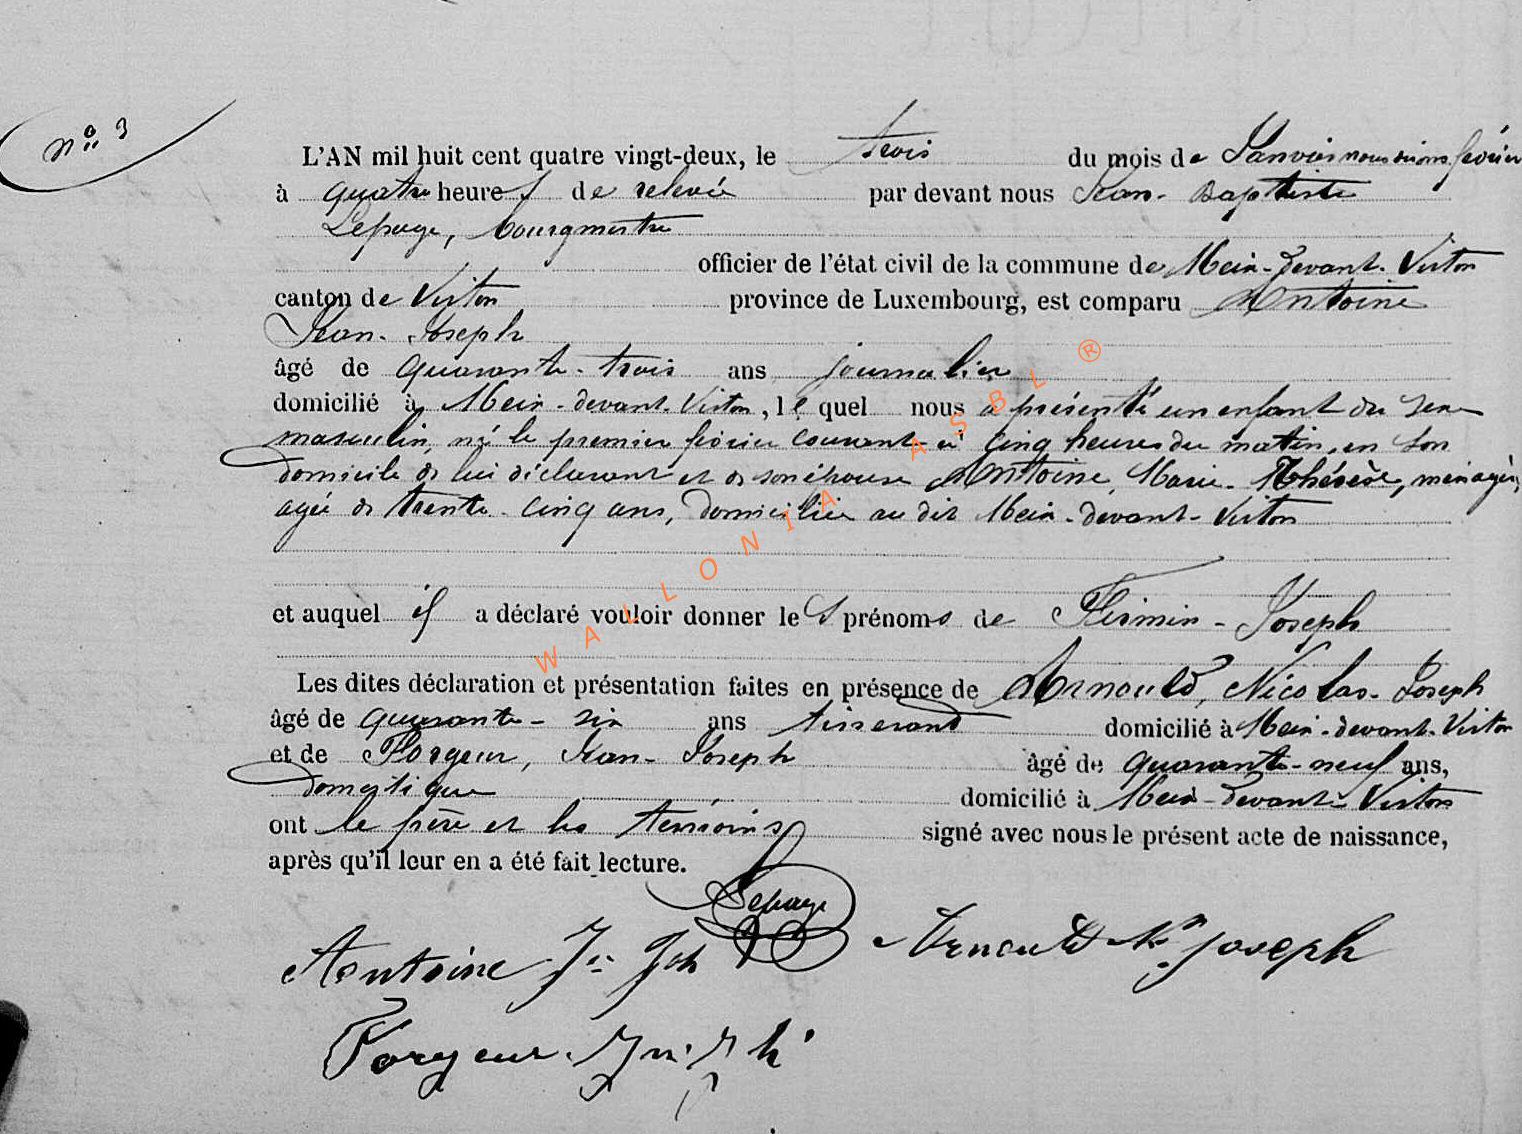 N° 3
L'AN mil huit cent quatre vingt-deux, le trois du mois de Janvier nous disons février
à quatre heures de relevée par devant nous Jean-Baptiste
Lepage, bourgmestre
officier de l'état civil de la commune de Meix-devant-Virton
canton de Virton province de Luxembourg, est comparu Antoine
Jean-Joseph
âgé de quarante-trois ans journalier
domicilié à Meix-devant-Virton, lequel nous a présenté un enfant du sexe
masculin, né le premier février courant à cinq heures du matin, en son
domicile de lui déclarant et de son épouse Antoine, Marie-Thérèse, ménagère,
agée de trente-cinq ans, domiciliée au dit Meix-devant-Virton
et auquel il a déclaré vouloir donner les prénoms de Firmin-Joseph
Les dites déclaration et présentation faites en présence de Arnould, Nicolas-Joseph
âgé de quarante-six ans tisserand domicilié à Meix-devant-Virton
et de Forgeur, Jean-Joseph âgé de quarante-neuf ans,
domestique domicilié à Meix-devant-Virton
ont le père et les témoins signé avec nous le présent acte de naissance,
après qu'il leur en a été fait lecture.
Lepage
Antoine Jn Jph Arnould Nas Joseph
Forgeur Jn Jh
WALLONIA ASBL ®